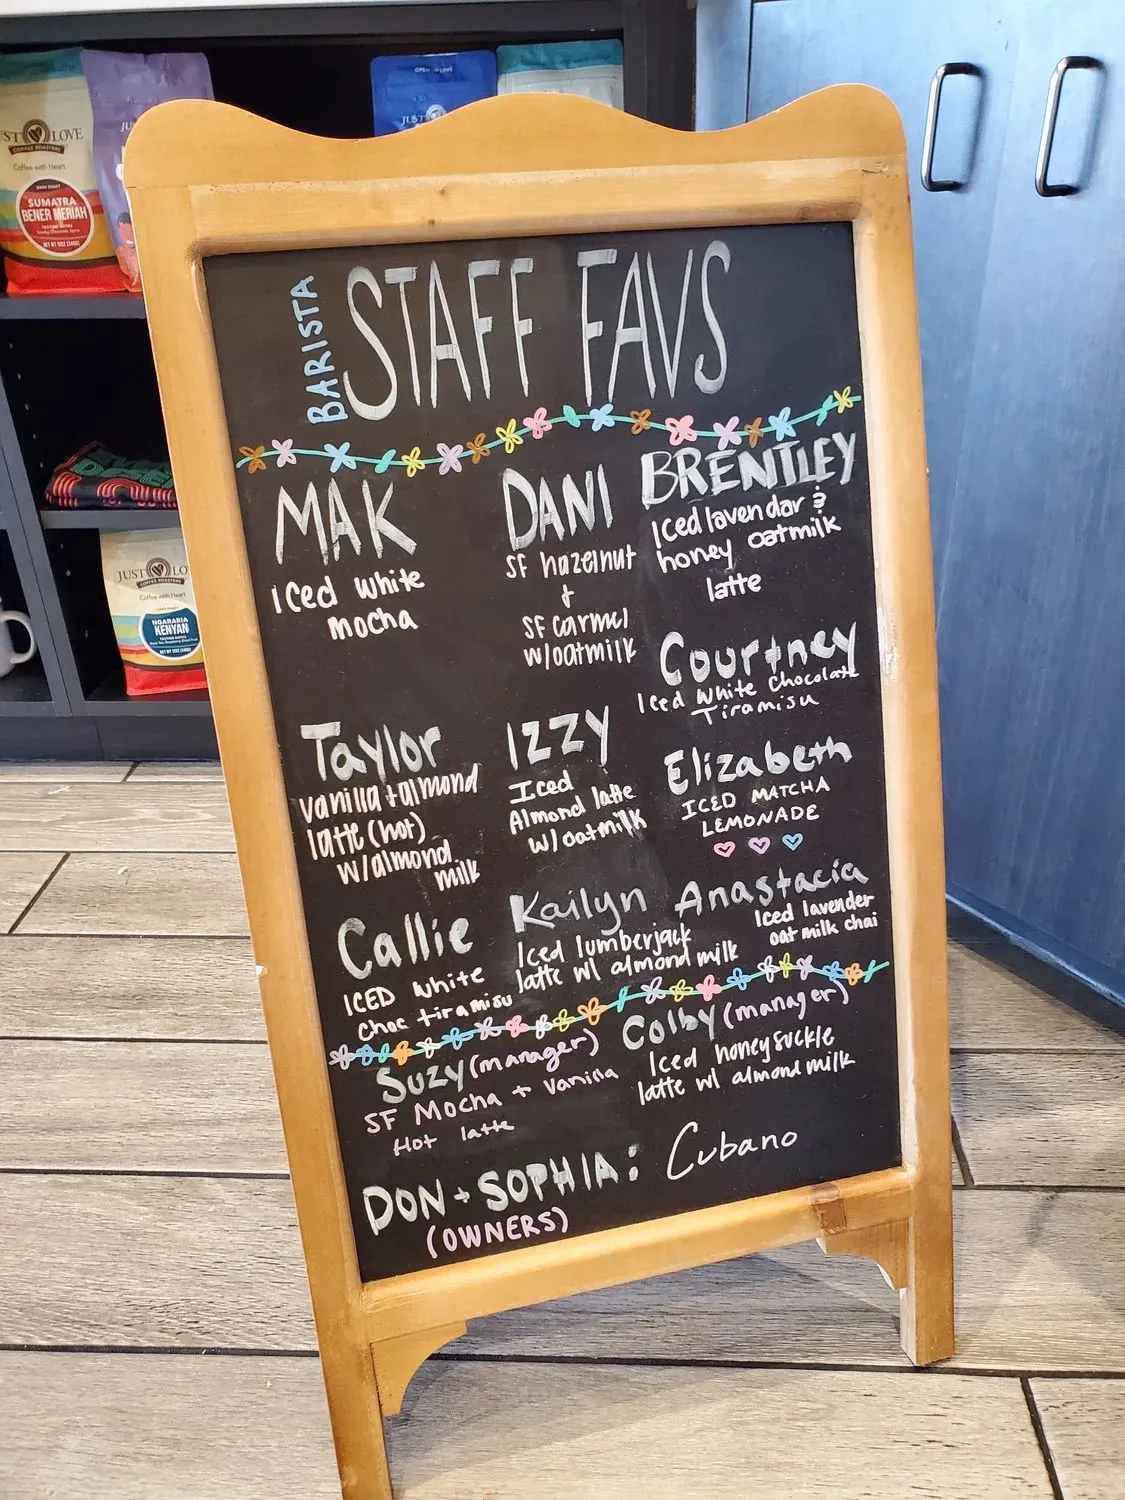 JUST LOVE
COFFEE ROASTERS
Coffee with Heart
DARK ROAST
SUMATRA
BENER MERIAH
TASTING NOTES
NET WT 12OZ (340G)
OPEN IN LOVE
JUST
BARISTA
STAFF FAVS
MAK
Iced white
mocha
DANI
SF hazelnut
+
SF carmel
w/oatmilk
BRENTLEY
Iced lavendar &
honey oatmilk
latte
Courtney
Iced White Chocolate
Tiramisu
Taylor
vanilla + almond
latte (hot)
w/almond
milk
IZZY
Iced
Almond latte
w/ oatmilk
Elizabeth
ICED MATCHA
LEMONADE
Callie
ICED white
choc tiramisu
Kailyn
Iced lumberjack
latte w/ almond milk
Anastacia
Iced lavender
oat milk chai
Suzy (manager)
SF Mocha + Vanilla
Hot latte
Colby (manager)
Iced honeysuckle
latte w/ almond milk
DON + SOPHIA: Cubano
(OWNERS)
JUST LO
COFFEE ROASTERS
Coffee with Heart
NGARARIA
KENYAN
TASTING NOTES
NET WT 12OZ (340G)